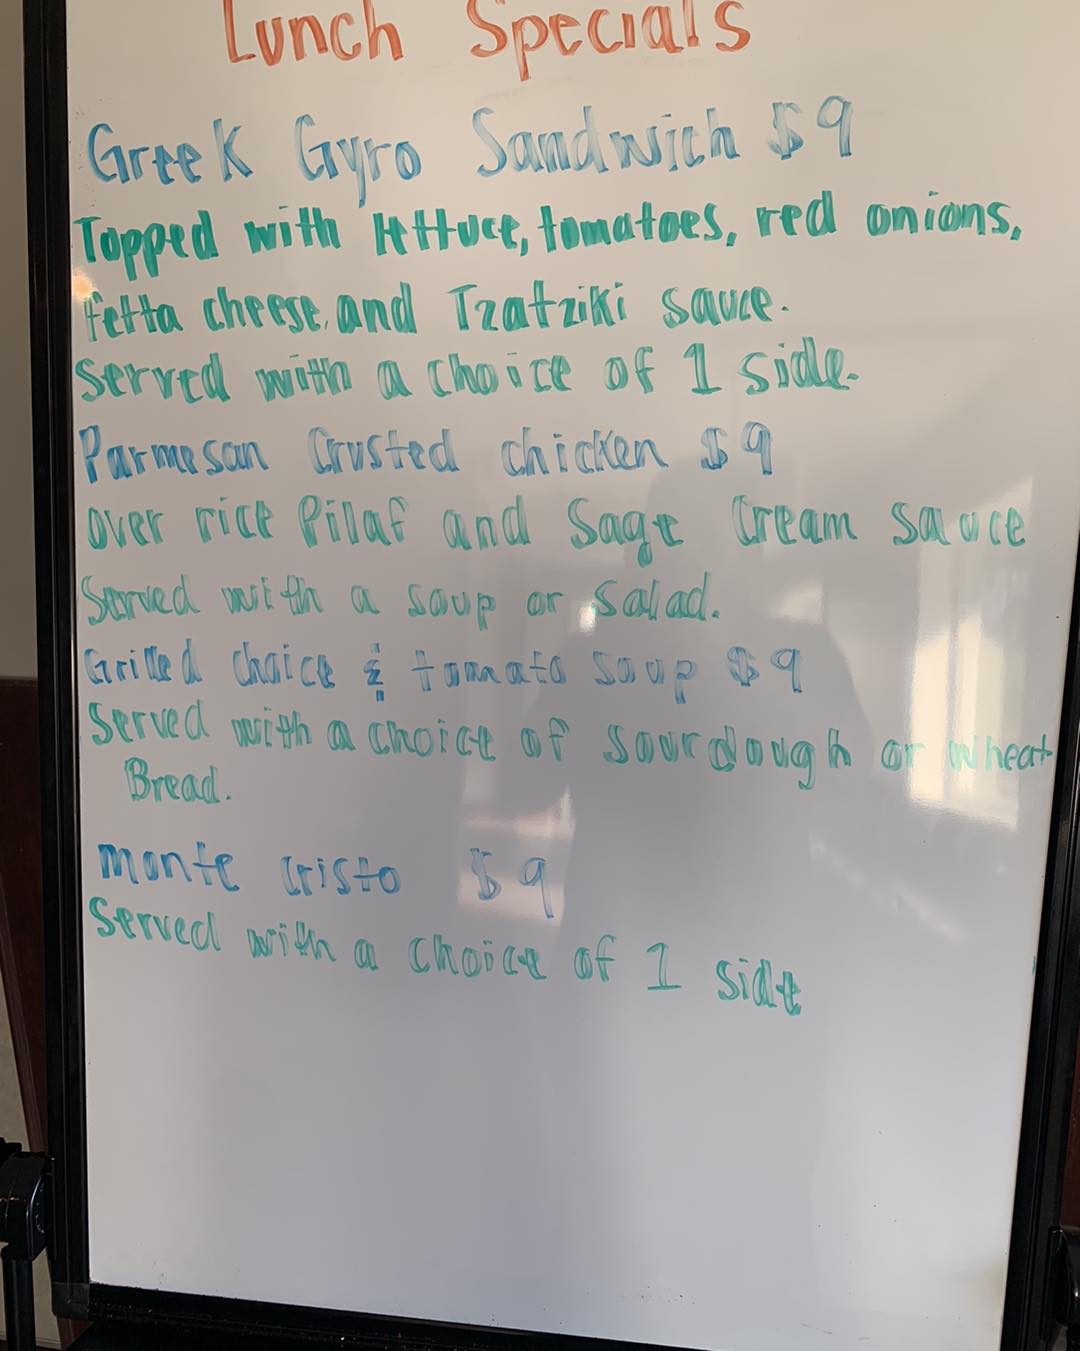 Lunch Specials
Greek Gyro Sandwich $9
Topped with lettuce, tomatoes, red onions,
fetta cheese, and Tzatziki sauce.
Served with a choice of 1 side.
Parmesan Crusted chicken $9
over rice Pilaf and Sage Cream sauce
Served with a soup or salad.
Grilled choice & tomato soup $9
Served with a choice of sourdough or wheat
Bread.
monte cristo $9
Served with a choice of 1 side